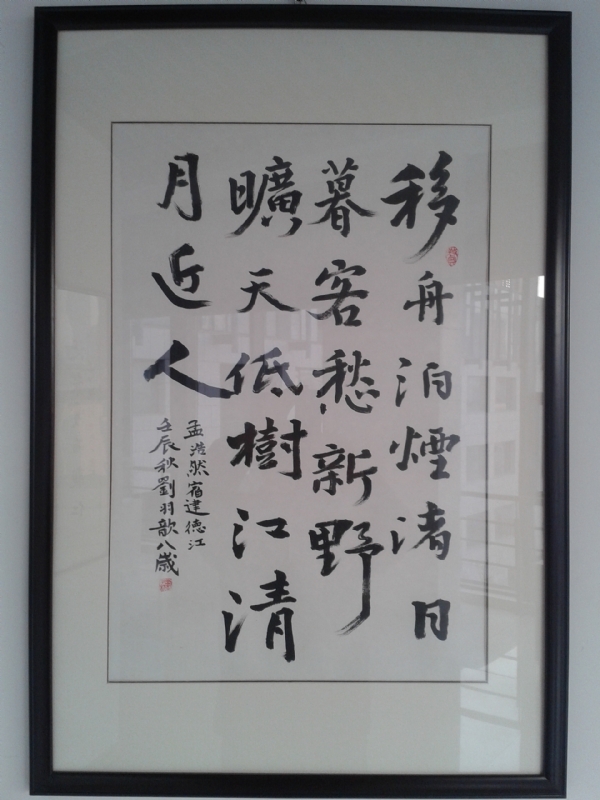 移舟泊煙渚日
暮客愁新野
曠天低樹江清
月近人
孟浩然宿建德江
壬辰秋劉羽歆八歲